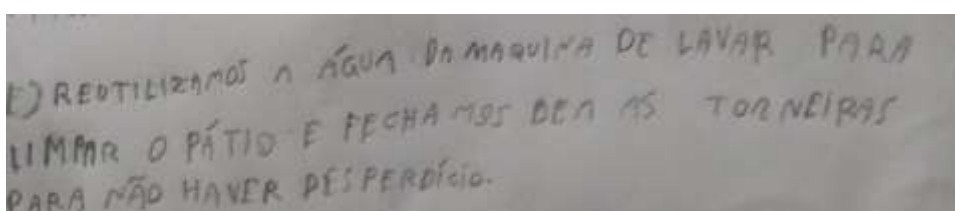 E) REUTILIZAMOS A ÁGUA DA MAQUINA DE LAVAR PARA
LIMPAR O PÁTIO E FECHAMOS BEM AS TORNEIRAS
PARA NÃO HAVER DESPERDÍCIO.